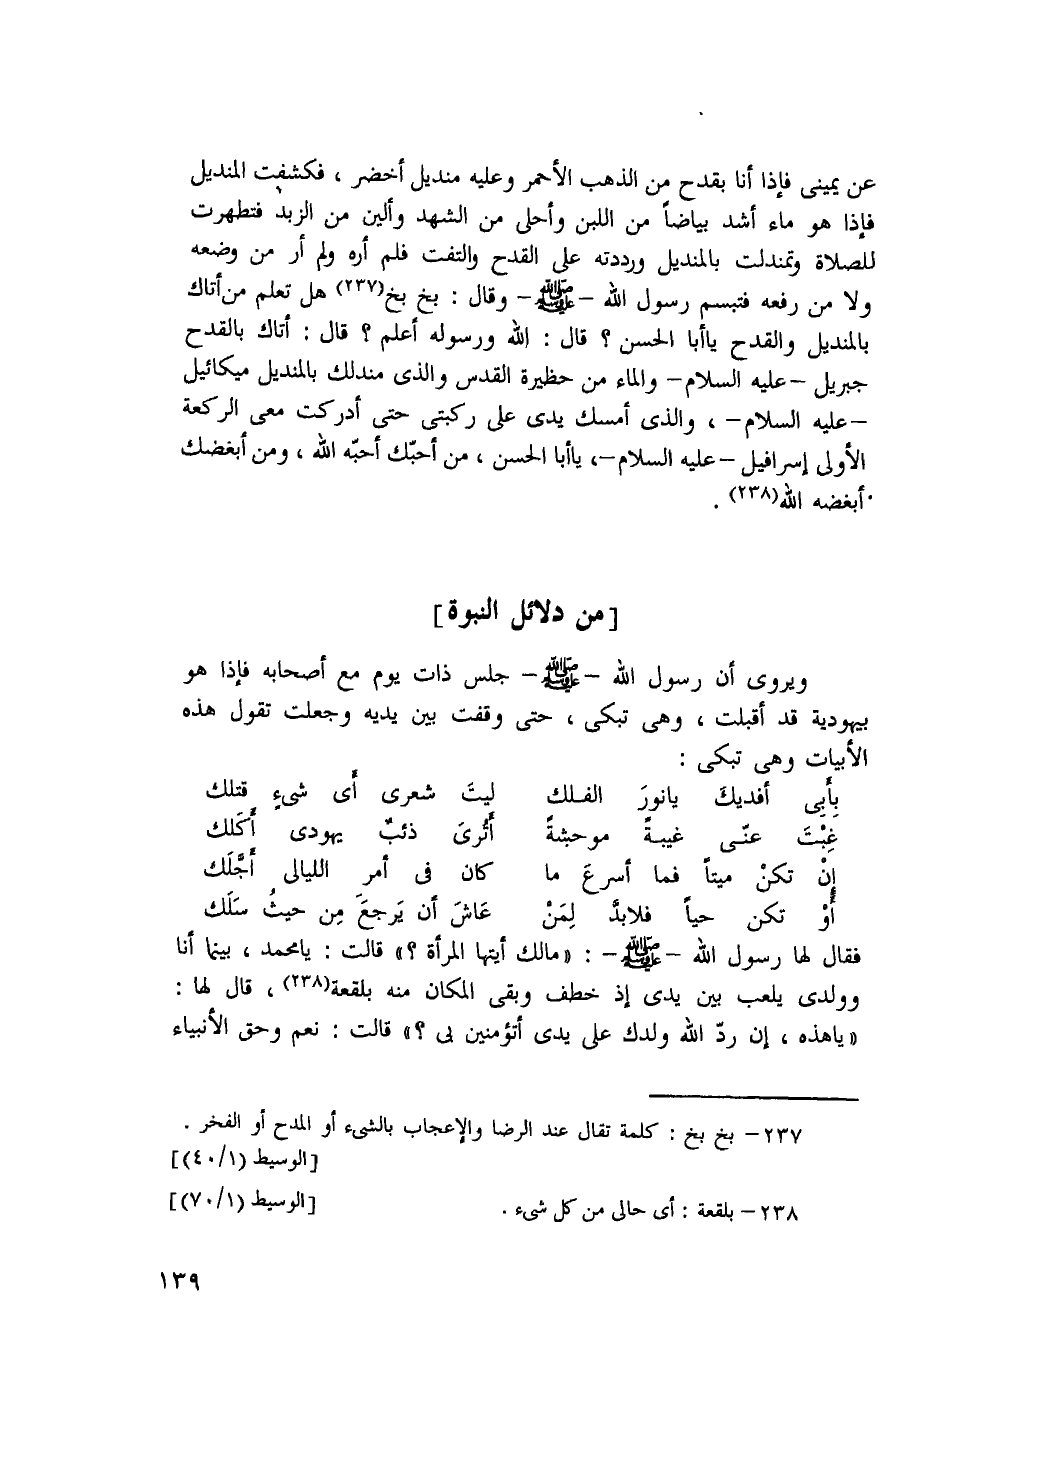 عن يمينى فإذا أنا بقدح من الذهب الأحمر وعليه منديل أخضر ، فكشفت المنديل
فإذا هو ماء أشد بياضاً من اللبن وأحلى من الشهد وألين من الزبد فتطهرت
للصلاة وتمندلت بالمنديل ورددته على القدح والتفت فلم أره ولم أر من وضعه
ولا من رفعه فتبسم رسول الله – ﷺ – وقال : بخ بخ(٢٣٧) هل تعلم من أتاك
بالمنديل والقدح ياأبا الحسن ؟ قال : الله ورسوله أعلم ؟ قال : أتاك بالقدح
جبريل –عليه السلام– والماء من حظيرة القدس والذى مندلك بالمنديل ميكائيل
–عليه السلام– ، والذى أمسك يدى على ركبتى حتى أدركت معى الركعة
الأولى إسرافيل –عليه السلام–، ياأبا الحسن ، من أحبّك أحبّه الله ، ومن أبغضك
أبغضه الله(٢٣٨) .
[من دلائل النبوة]
ويروى أن رسول الله – ﷺ – جلس ذات يوم مع أصحابه فإذا هو
بيهودية قد أقبلت ، وهى تبكى ، حتى وقفت بين يديه وجعلت تقول هذه
الأبيات وهى تبكى :
بِأَبِى أفديكَ يانورَ الفلك ليتَ شعرى أَى شىءٍ قتلك
غِبْتَ عنّى غيبةً موحشةً أَتُرىَ ذئبٌ يهودى أَكَلك
إِنْ تكنْ ميتاً فما أسرعَ ما كان فى أمر الليالى أَجَّلَك
أَوْ تكن حياً فلابدَّ لِمَنْ عَاشَ أن يَرجعَ مِن حيثُ سَلَك
فقال لها رسول الله – ﷺ – : «مالك أيتها المرأة ؟» قالت : يامحمد ، بينما أنا
وولدى يلعب بين يدى إذ خطف وبقى المكان منه بلقعة(٢٣٨) ، قال لها :
«ياهذه ، إن ردّ الله ولدك على يدى أتؤمنين بى ؟» قالت : نعم وحق الأنبياء
٢٣٧– بخ بخ : كلمة تقال عند الرضا والإعجاب بالشىء أو المدح أو الفخر .
[الوسيط (٤٠/١)]
٢٣٨– بلقعة : أى حالى من كل شىء . [الوسيط (٧٠/١)]
١٣٩